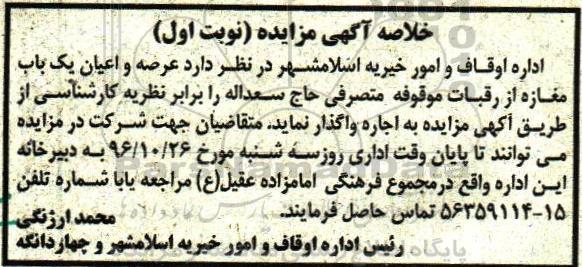 خلاصه آگهی مزایده (نوبت اول)
اداره اوقاف و امور خیریه اسلامشهر در نظر دارد عرصه و اعیان یک باب
مغازه از رقبات موقوفه متصرفی حاج سعداله را برابر نظریه کارشناسی از
طریق آگهی مزایده به اجاره واگذار نماید، متقاضیان جهت شرکت در مزایده
می توانند تا پایان وقت اداری روزسه شنبه مورخ ۹۶/۱۰/۲۶ به دبیرخانه
این اداره واقع درمجموع فرهنگی امامزاده عقیل(ع) مراجعه یابا شماره تلفن
۱۵-۵۶۳۵۹۱۱۴ تماس حاصل فرمایند.
محمد ارژنگی
رئیس اداره اوقاف و امور خیریه اسلامشهر و چهاردانگه